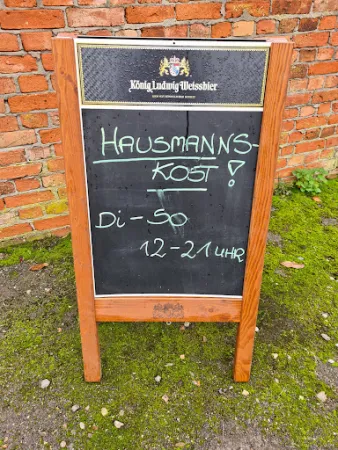 König Ludwig Weissbier
HAUSMANNS-
KOST!
Di-So
12-21 UHR